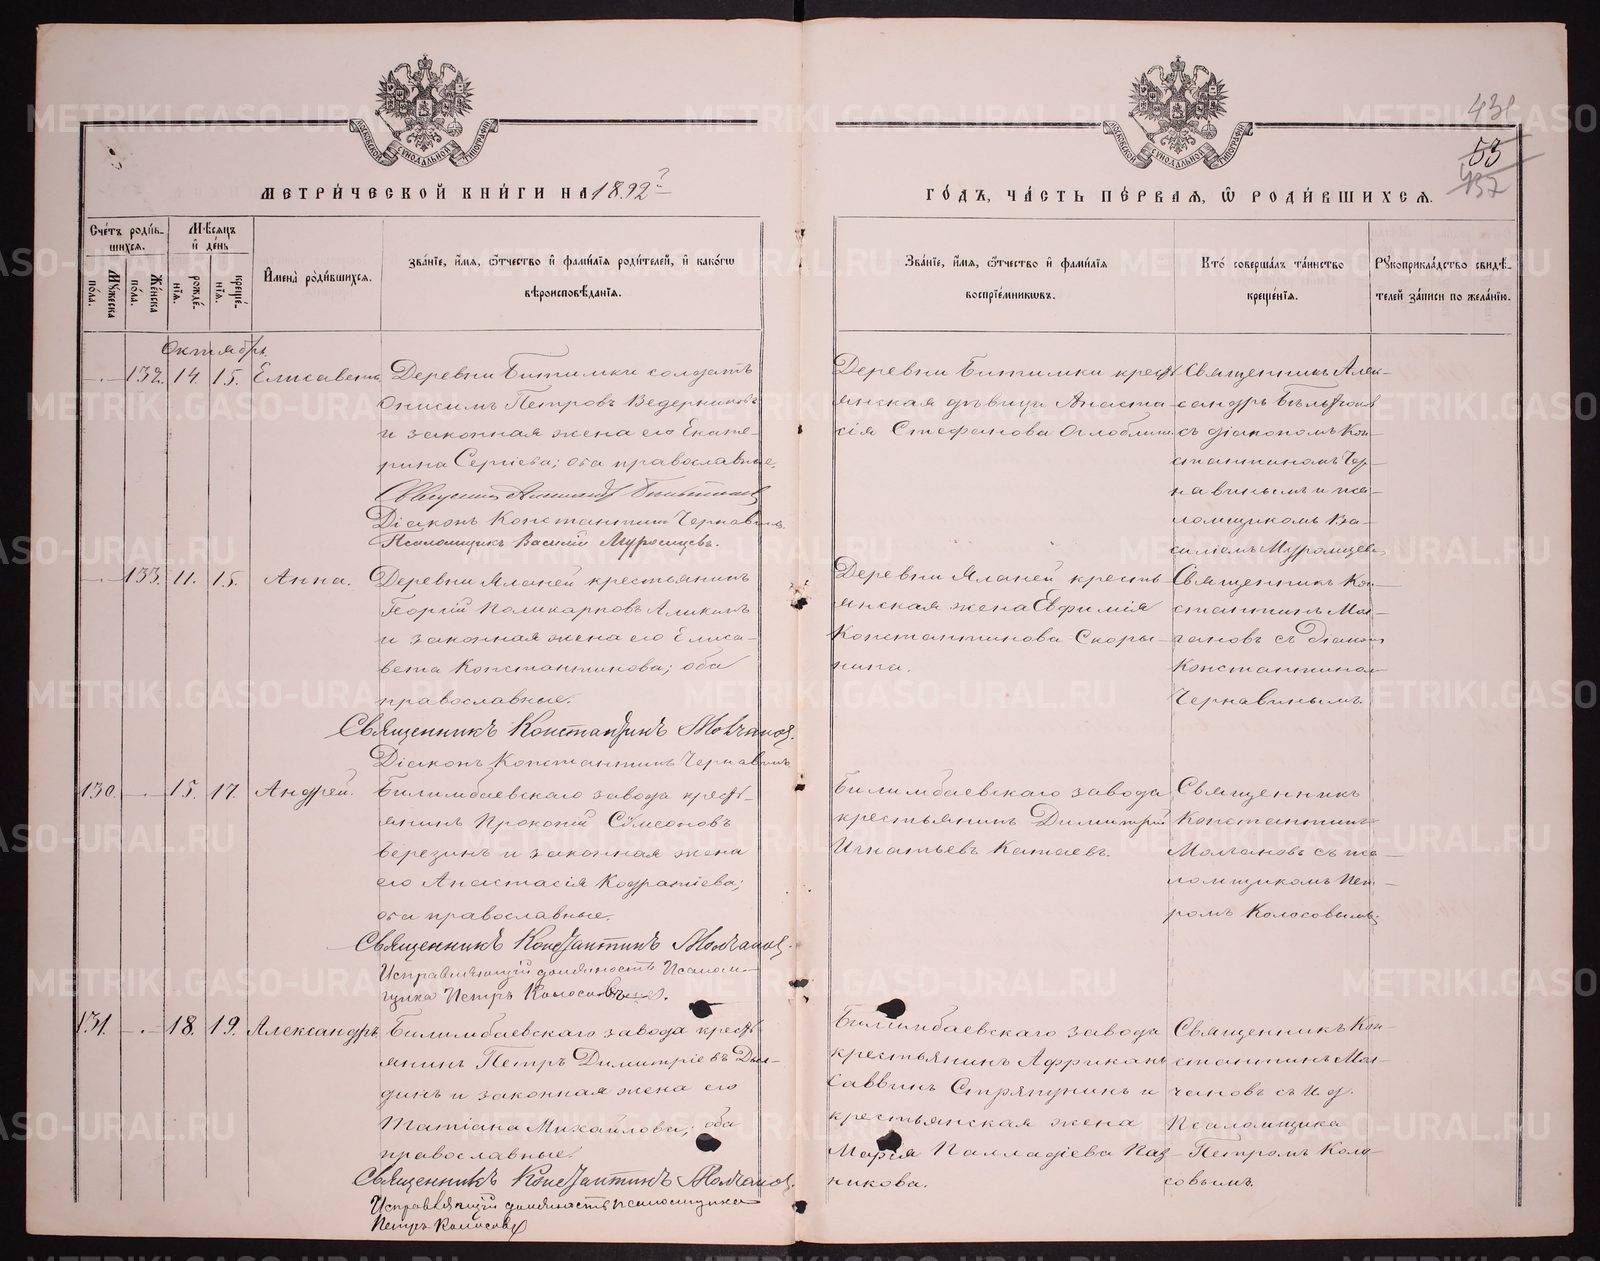 МЕТРИ́ЧЕСКОЙ КНИ́ГИ НА 1892 г.
ГО́ДЪ, ЧА́СТЬ ПЕ́РВАЯ, Ѿ РОДИ́ВШИХСѦ.
431
53
437
МОСКОВСКОЙ СѴНОДАЛЬНОЙ ТИПОГРАФІИ
МОСКОВСКОЙ СѴНОДАЛЬНОЙ ТИПОГРАФІИ
Сче́тъ роди́в-
шихсѧ.
Мꙋжеска
пола.
Же́нска
пола.
Мѣ́сѧцъ
и҆ де́нь
рожде́-
нїѧ.
креще́-
нїѧ.
И҆мена̀ роди́вшихсѧ.
Зва́нїе, и҆́мѧ, ѻ҆́тчество и҆ фами́лїѧ роди́телей, и҆ како́гѡ
вѣроисповѣ́данїѧ.
Зва́нїе, и҆́мѧ, ѻ҆́тчество и҆ фами́лїѧ
воспрїе́мникѡвъ.
Кто̀ соверша́лъ та́инство
креще́нїѧ.
Рꙋкоприкла́дство свидѣ́-
телей за́писи по жела́нїю.
Октябрь
132. 14. 15. Елисавета
Деревни Битимки солдатъ
Онисимъ Петровъ Ведерниковъ
и законная жена его Екате-
рина Сергіева; оба православные.
Діаконъ Константинъ Чернавинъ
Псаломщикъ Василій Муромцевъ.
Деревни Битимки кресть-
янская дѣвица Анаста-
сія Стефанова Оглоблина.
Священникъ Алек-
сандръ
съ діакономъ Кон-
стантиномъ Чер-
навинымъ и пса-
ломщикомъ Ва-
силіемъ Муромцевымъ
133. 11. 15. Анна.
Деревни Яланей крестьянинъ
Георгій Поликарповъ Аликинъ
и законная жена его Елиса-
вета Константинова; оба
православные.
Священникъ Константинъ Молчановъ.
Діаконъ Константинъ Чернавинъ
Деревни Яланей кресть-
янская жена Евфимія
Константинова Скоры-
нина.
Священникъ Кон-
стантинъ Мол-
чановъ съ діакон.
Константином
Чернавинымъ.
130. 15. 17. Андрей.
Билимбаевскаго завода кресть-
янинъ Прокопій Сѵмеоновъ
Березинъ и законная жена
его Анастасія Кодратіева;
оба православные.
Священникъ Константинъ Молчановъ.
Исправляющій должность Псалом-
щика Петръ Колосовъ.
Билимбаевскаго завода
крестьянинъ Димитрій
Игнатьевъ Катаевъ.
Священникъ
Константинъ
Молчановъ съ пса-
ломщикомъ Пет-
ромъ Колосовымъ.
131. 18. 19. Александръ.
Билимбаевскаго завода кресть-
янинъ Петръ Димитріевъ Дыл-
динъ и законная жена его
Татіана Михайлова; оба
православные.
Священникъ Константинъ Молчановъ.
Исправляющій должность псаломщика
Петръ Колосовъ
Билимбаевскаго завода
крестьянинъ Африканъ
Саввинъ Стряпунинъ и
крестьянская жена
Марія Палладіева Паз-
никова.
Священникъ Кон-
стантинъ Мол-
чановъ съ И. д.
Псаломщика
Петромъ Коло-
совымъ.
METRIKI.GASO-URAL.RU